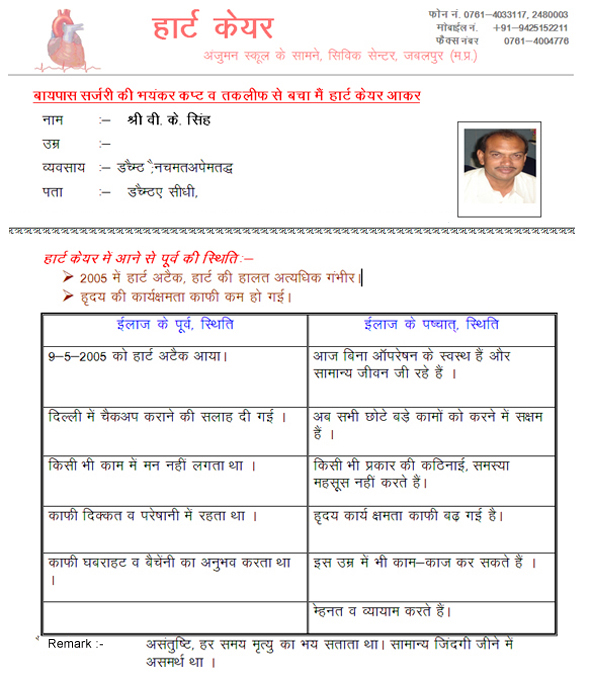 हार्ट केयर
फोन नं. 0761-4033117, 2480003
मोबाईल नं. +91-9425152211
फैक्स नंबर 0761-4004776
अंजुमन स्कूल के सामने, सिविक सेन्टर, जबलपुर (म.प्र.)
बायपास सर्जरी की भयंकर कष्ट व तकलीफ से बचा मैं हार्ट केयर आकर
नाम :– श्री वी. के. सिंह
उम्र :–
व्यवसाय :– डच्म्ठ ;ैनचमतअपेमतद्ध
पता :– डच्म्ठए सीधी,
हार्ट केयर में आने से पूर्व की स्थिति:–
2005 में हार्ट अटैक, हार्ट की हालत अत्यधिक गंभीर।
हृदय की कार्यक्षमता काफी कम हो गई।
ईलाज के पूर्व, स्थिति ईलाज के पष्चात्, स्थिति
9–5–2005 को हार्ट अटैक आया। आज बिना ऑपरेषन के स्वस्थ हैं और
सामान्य जीवन जी रहे हैं ।
दिल्ली में चैकअप कराने की सलाह दी गई । अब सभी छोटे बड़े कामों को करने में सक्षम
हैं ।
किसी भी काम में मन नहीं लगता था । किसी भी प्रकार की कठिनाई, समस्या
महसूस नहीं करते हैं।
काफी दिक्कत व परेषानी में रहता था । हृदय कार्य क्षमता काफी बढ़ गई है।
काफी घबराहट व बैचेंनी का अनुभव करता था इस उम्र में भी काम–काज कर सकते हैं ।
।
म्हेनत व व्यायाम करते हैं।
Remark :- असंतुष्टि, हर समय मृत्यु का भय सताता था। सामान्य जिंदगी जीने में
असमर्थ था ।